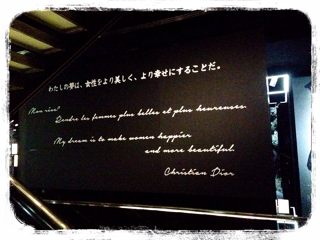 わたしの夢は、女性をより美しく、より幸せにすることだ。
Mon rêve?
Rendre les femmes plus belles et plus heureuses.
My dream is to make women happier
and more beautiful.
Christian Dior